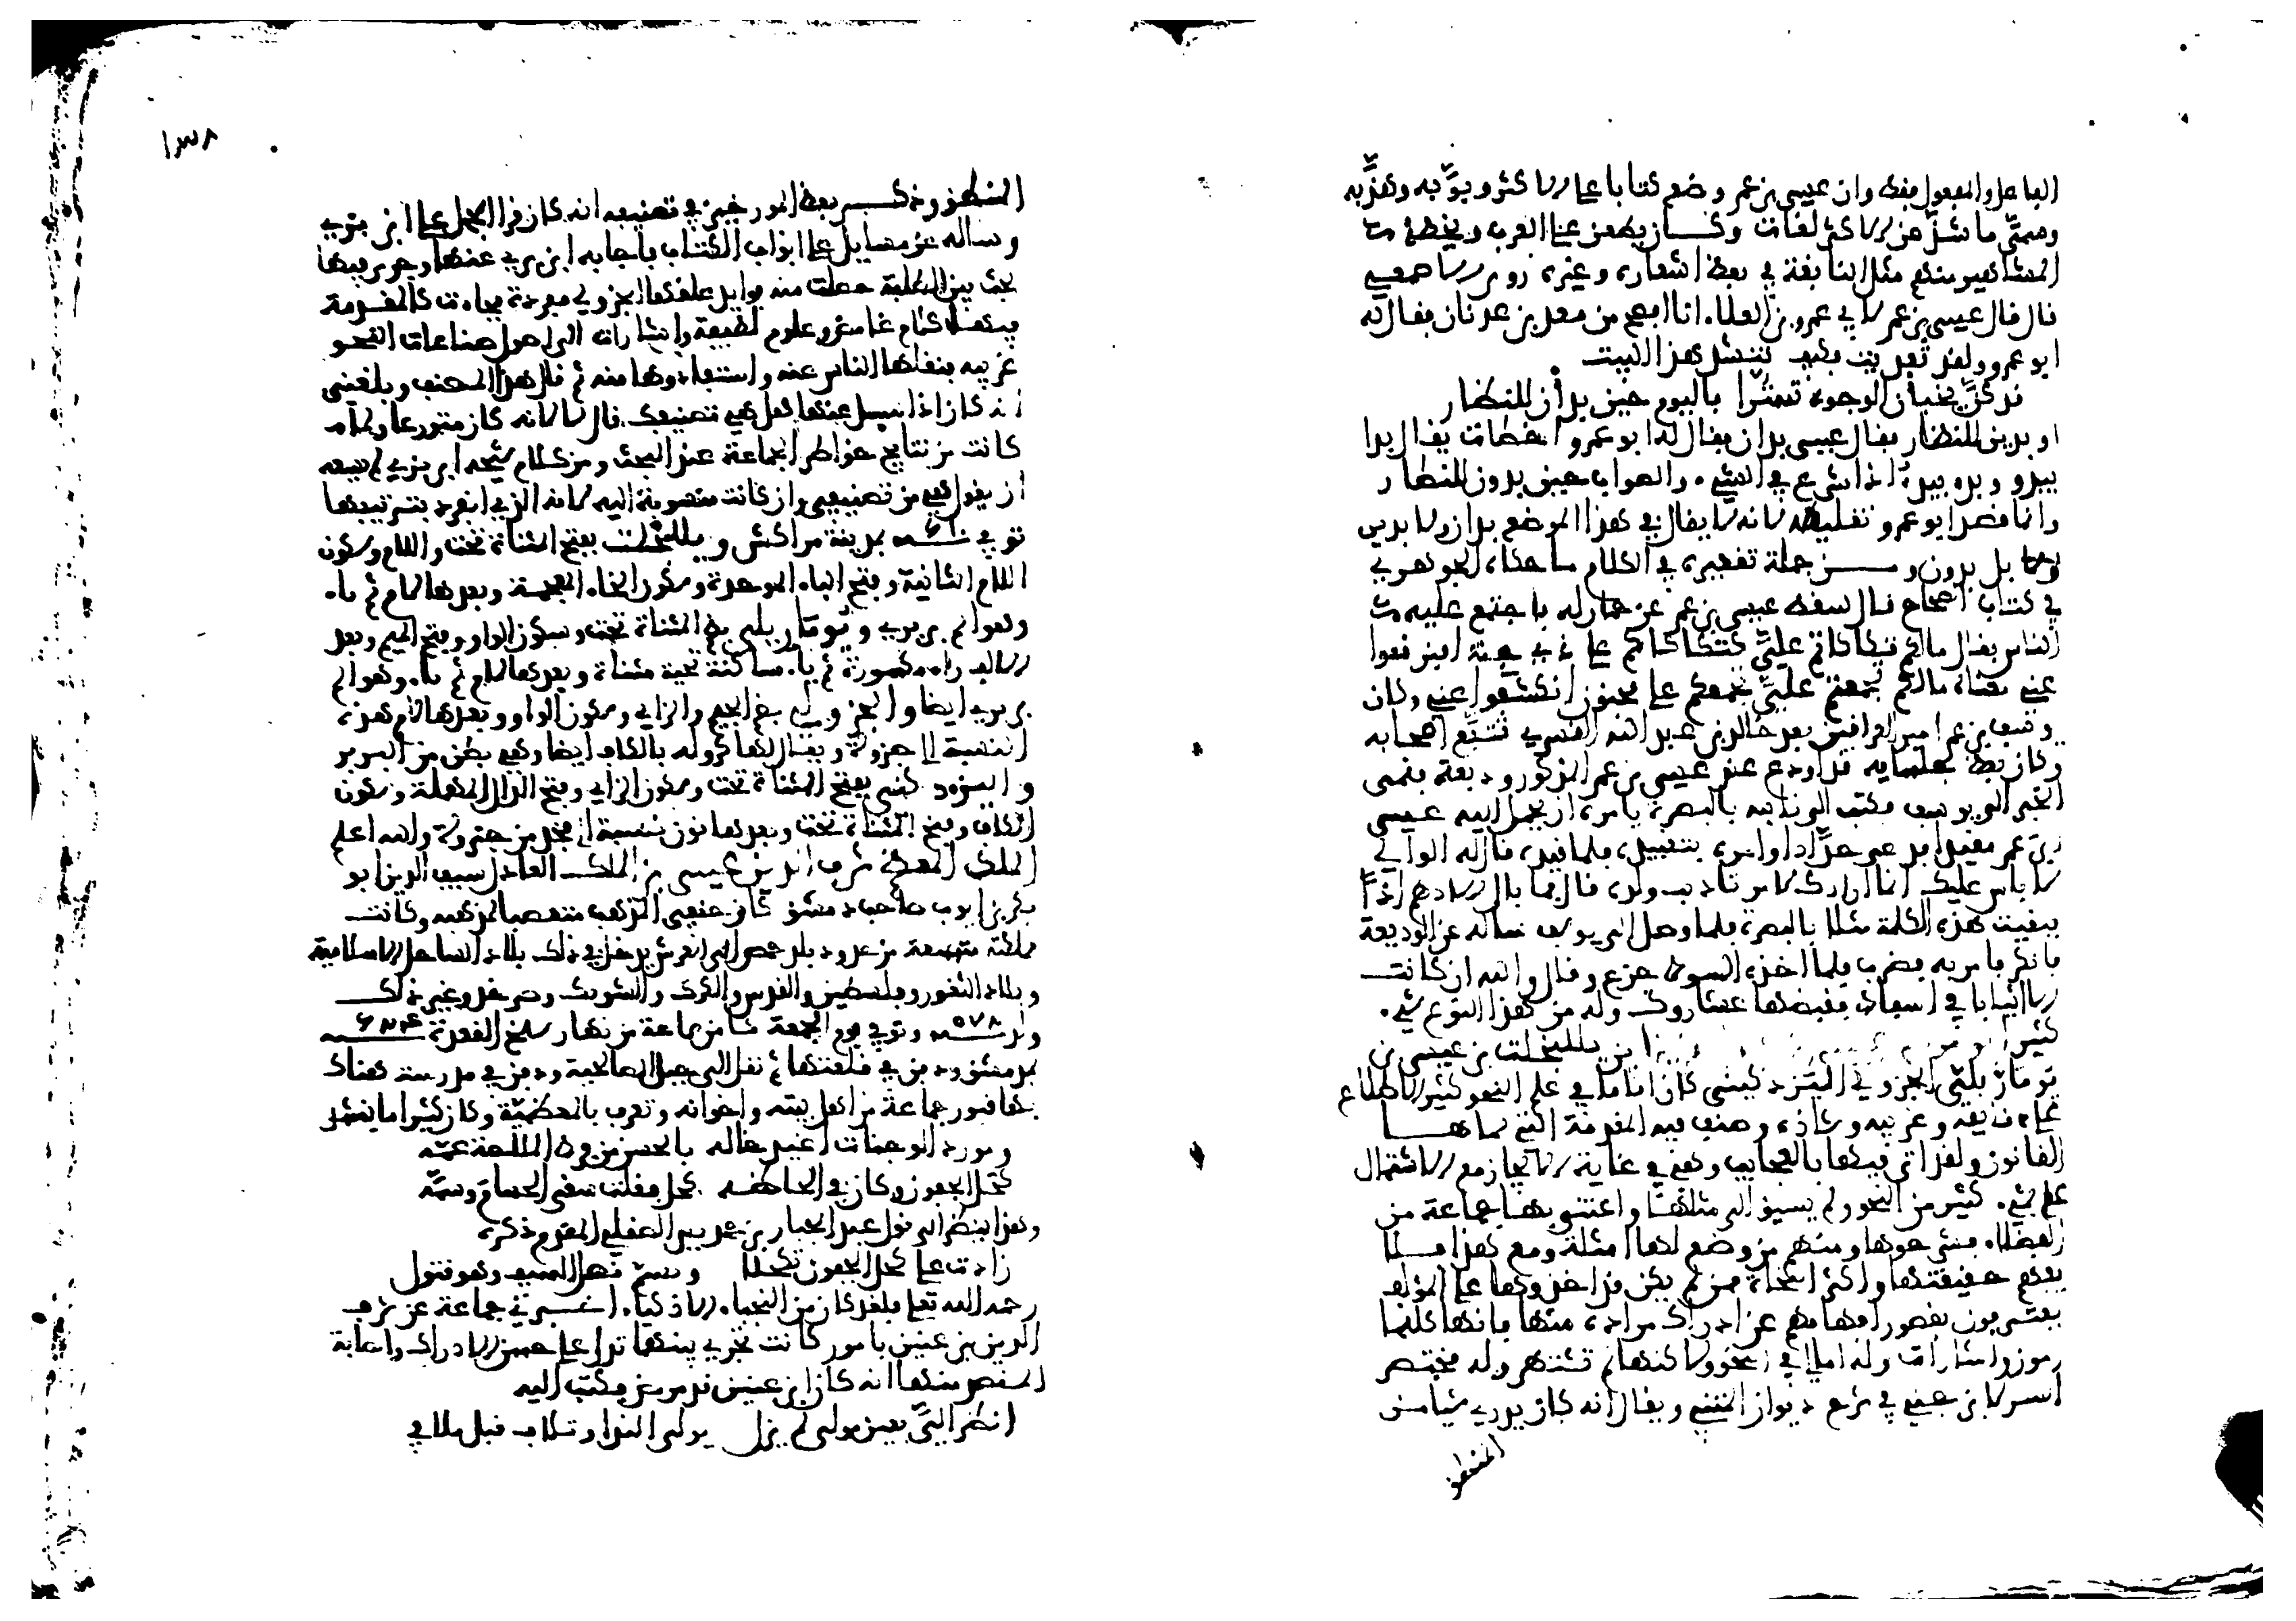 الفاعل والمفعول فقط وان عيسى بن عمر وضع كتابا على الاكثر وبوّبه وهذّبه
وسمّى ما شذّ عن الاكثر لغات وكان يطعن على العرب ويخطئ
المشاهير منهم مثل النابغة في بعض اشعاره وغيره روى الاصمعي
قال قال عيسى بن عمر لابي عمرو بن العلا انا افصح من معد بن عدنان فقال له
ابو عمرو لقد تعديت فكيف تنشد هذا البيت
قد كنّ يخبان الوجوه تستّرا فاليوم حين بدأن للنظار
او بدين للنظار فقال عيسى بدان فقال له ابو عمرو اخطات يقال بدا
يبدو وبدا يبدا اذا شرع في الشيء والصواب حين بدون للنظار
وانما قصد ابو عمرو تغليطه لانه لا يقال في هذا الموضع بدان ولا بدين
بل بدون ومن جملة تقعيره في الكلام ما حكاه الجوهري
في كتاب الصحاح قال سقط عيسى بن عمر عن حمار له فاجتمع عليه
الناس فقال مالكم تكاكاتم عليّ كتكاكاكم على ذي جنة افرنقعوا
عني معناه مالكم تجمعتم عليّ تجمعكم على مجنون انكشفوا عني وكان
يوسف بن عمر امير العراقين بعد خالد بن عبد الله القسري تتبّع اصحابه
وكان بعض جلسايه قد اودع عند عيسى بن عمر المذكور وديعة فنمى
الخبر الى يوسف فكتب الى نايبه بالبصرة يامره ان يحمل اليه عيسى
بن عمر مقيدا فدعى حدّادا وامره بتقييده فلما قيده قال له الوالي
لا باس عليك انما ارادك الامير لتاديب ولده قال فما بال الادهم اذًا
فبقيت هذه الكلمة مثلا بالبصرة فلما وصل الى يوسف ساله عن الوديعة
فانكر فامر به فضرب فلما اخذه السوط جزع وقال والله ان كانت
الا اثيابا في اسيفاط فقبضها عشاروك وله من هذا النوع شيء
كثير بن يللبخت بن عيسى بن
يوماريلي الجزولي اليزدكتني كان اماما في علم النحو كثير الاطلاع
على دقيقه وغريبه وشاذه وصنف فيه المقدمة التي سماها
القانون ولقد اتى فيها بالعجايب وهي في غاية الايجاز مع الاشتمال
على شيء كثير من النحو ولم يسبق الى مثلها واعتنى بها جماعة من
الفضلا فشرحوها ومنهم من وضع لها امثلة ومع هذا فلا
يفهم حقيقتها واكثر النحاة ممن لم يكن قد اخذوها على الموقف
يعترفون بقصور افهامهم عن ادراك مراده منها فانها كلها
رموز واشارات وله امالي في النحو ولكنها لم تشتهر وله مختصر
الفسر لابن جني في شرح ديوان المتنبي ويقال انه كان يدري شيا من
المنطق
١٣٨
المنطق وذكر بعض المورخين في تصنيفه انه كان قرا الجمل على ابن بري
وساله عن مسايل على ابواب الكتاب فاجابه ابن بري عنها وجرى فيها
بحث بين الطلبة حصلت منه فوايد علقها الجزولي مفردة فجاءت كالمقدمة
فيها كلام غامض وعلوم لطيفة واشارات الى اصول صناعات النحو
غريبة فنقلها الناس عنه واستفادوها منه ثم قال هذا المصنف وبلغني
انه كان اذا سيل عنها هل هي تصنيفك قال لا لانه كان متورعا ولما
كانت من نتايج خواطر الجماعة عند البحث ومن كلام شيخه ابن بري لم يسعه
ان يقول هي من تصنيفي وان كانت منسوبة اليه لانه الذي انفرد بترتيبها
توفي بمدينة مراكش ويللبخت بفتح المثناة تحت واللام وسكون
اللام الثانية وفتح الباء الموحدة وسكون الخاء المعجمة وبعدها
وهو اسم بربري ويوماريلي بضم المثناة تحت وسكون الواو وفتح الميم وبعد
الالف راء مكسورة ثم ياء ساكنة تحتية مثناة وبعدها لام ثم ياء وهو اسم
بربري ايضا والجزولي بضم الجيم والزاي وسكون الواو وبعدها لام هذه
النسبة الى جزولة ويقال لها كزولة بالكاف ايضا وهي بطن من البربر
واليزدكتني بفتح المثناة تحت وسكون الزاي وفتح الدال المهملة وسكون
الكاف وفتح المثناة تحت وبعدها نون نسبة الى فخذ من جزولة والله اعلم
الملك المعظم شرف الدين عيسى بن الملك العادل سيف الدين ابو
بكر بن ايوب صاحب دمشق كان حنفي المذهب متعصبا لمذهبه وكانت
مملكته متسعة من حدود بلد حمص الى العريش يدخل في ذلك بلاد الساحل الاسلامية
وبلاد الغور وفلسطين والقدس والكرك والشوبك وصرخد وغير ذلك
ولد سنة ٥٧٨ وتوفي يوم الجمعة ثامن ساعة من نهار سلخ القعدة سنة
بدمشق ودفن في قلعتها ثم نقل الى جبل الصالحية ودفن في مدرسته هناك
بها قبور جماعة من اهل بيته واخوانه وتعرف بالمعظميّة وكان كثيرا ما ينشد
ومورد الوجنات اغيد خاله بالحسن من فرط الملاحة عمّه
كحل الجفون وكان في الحاظه كحل فقلت سقى الحسام وسمّه
وهذا ينظر الى قول عبد الجبار بن حمديس الصقلي المقدم ذكره
زادت على كحل الجفون تكحلا ويسمّ نصل السيف وهو قتول
رحمه الله تعالى فلقد كان من النجباء الاذكياء اخبرني جماعة عن شرف
الدين بن عنين بامور كانت تجري بينهما تدل على حسن الادراك واصابة
المقصد منها انه كان ابن عنين قد مرض فكتب اليه
انظر اليّ بعين مولى لم يزل يولى الندا وتلاف قبل تلافي